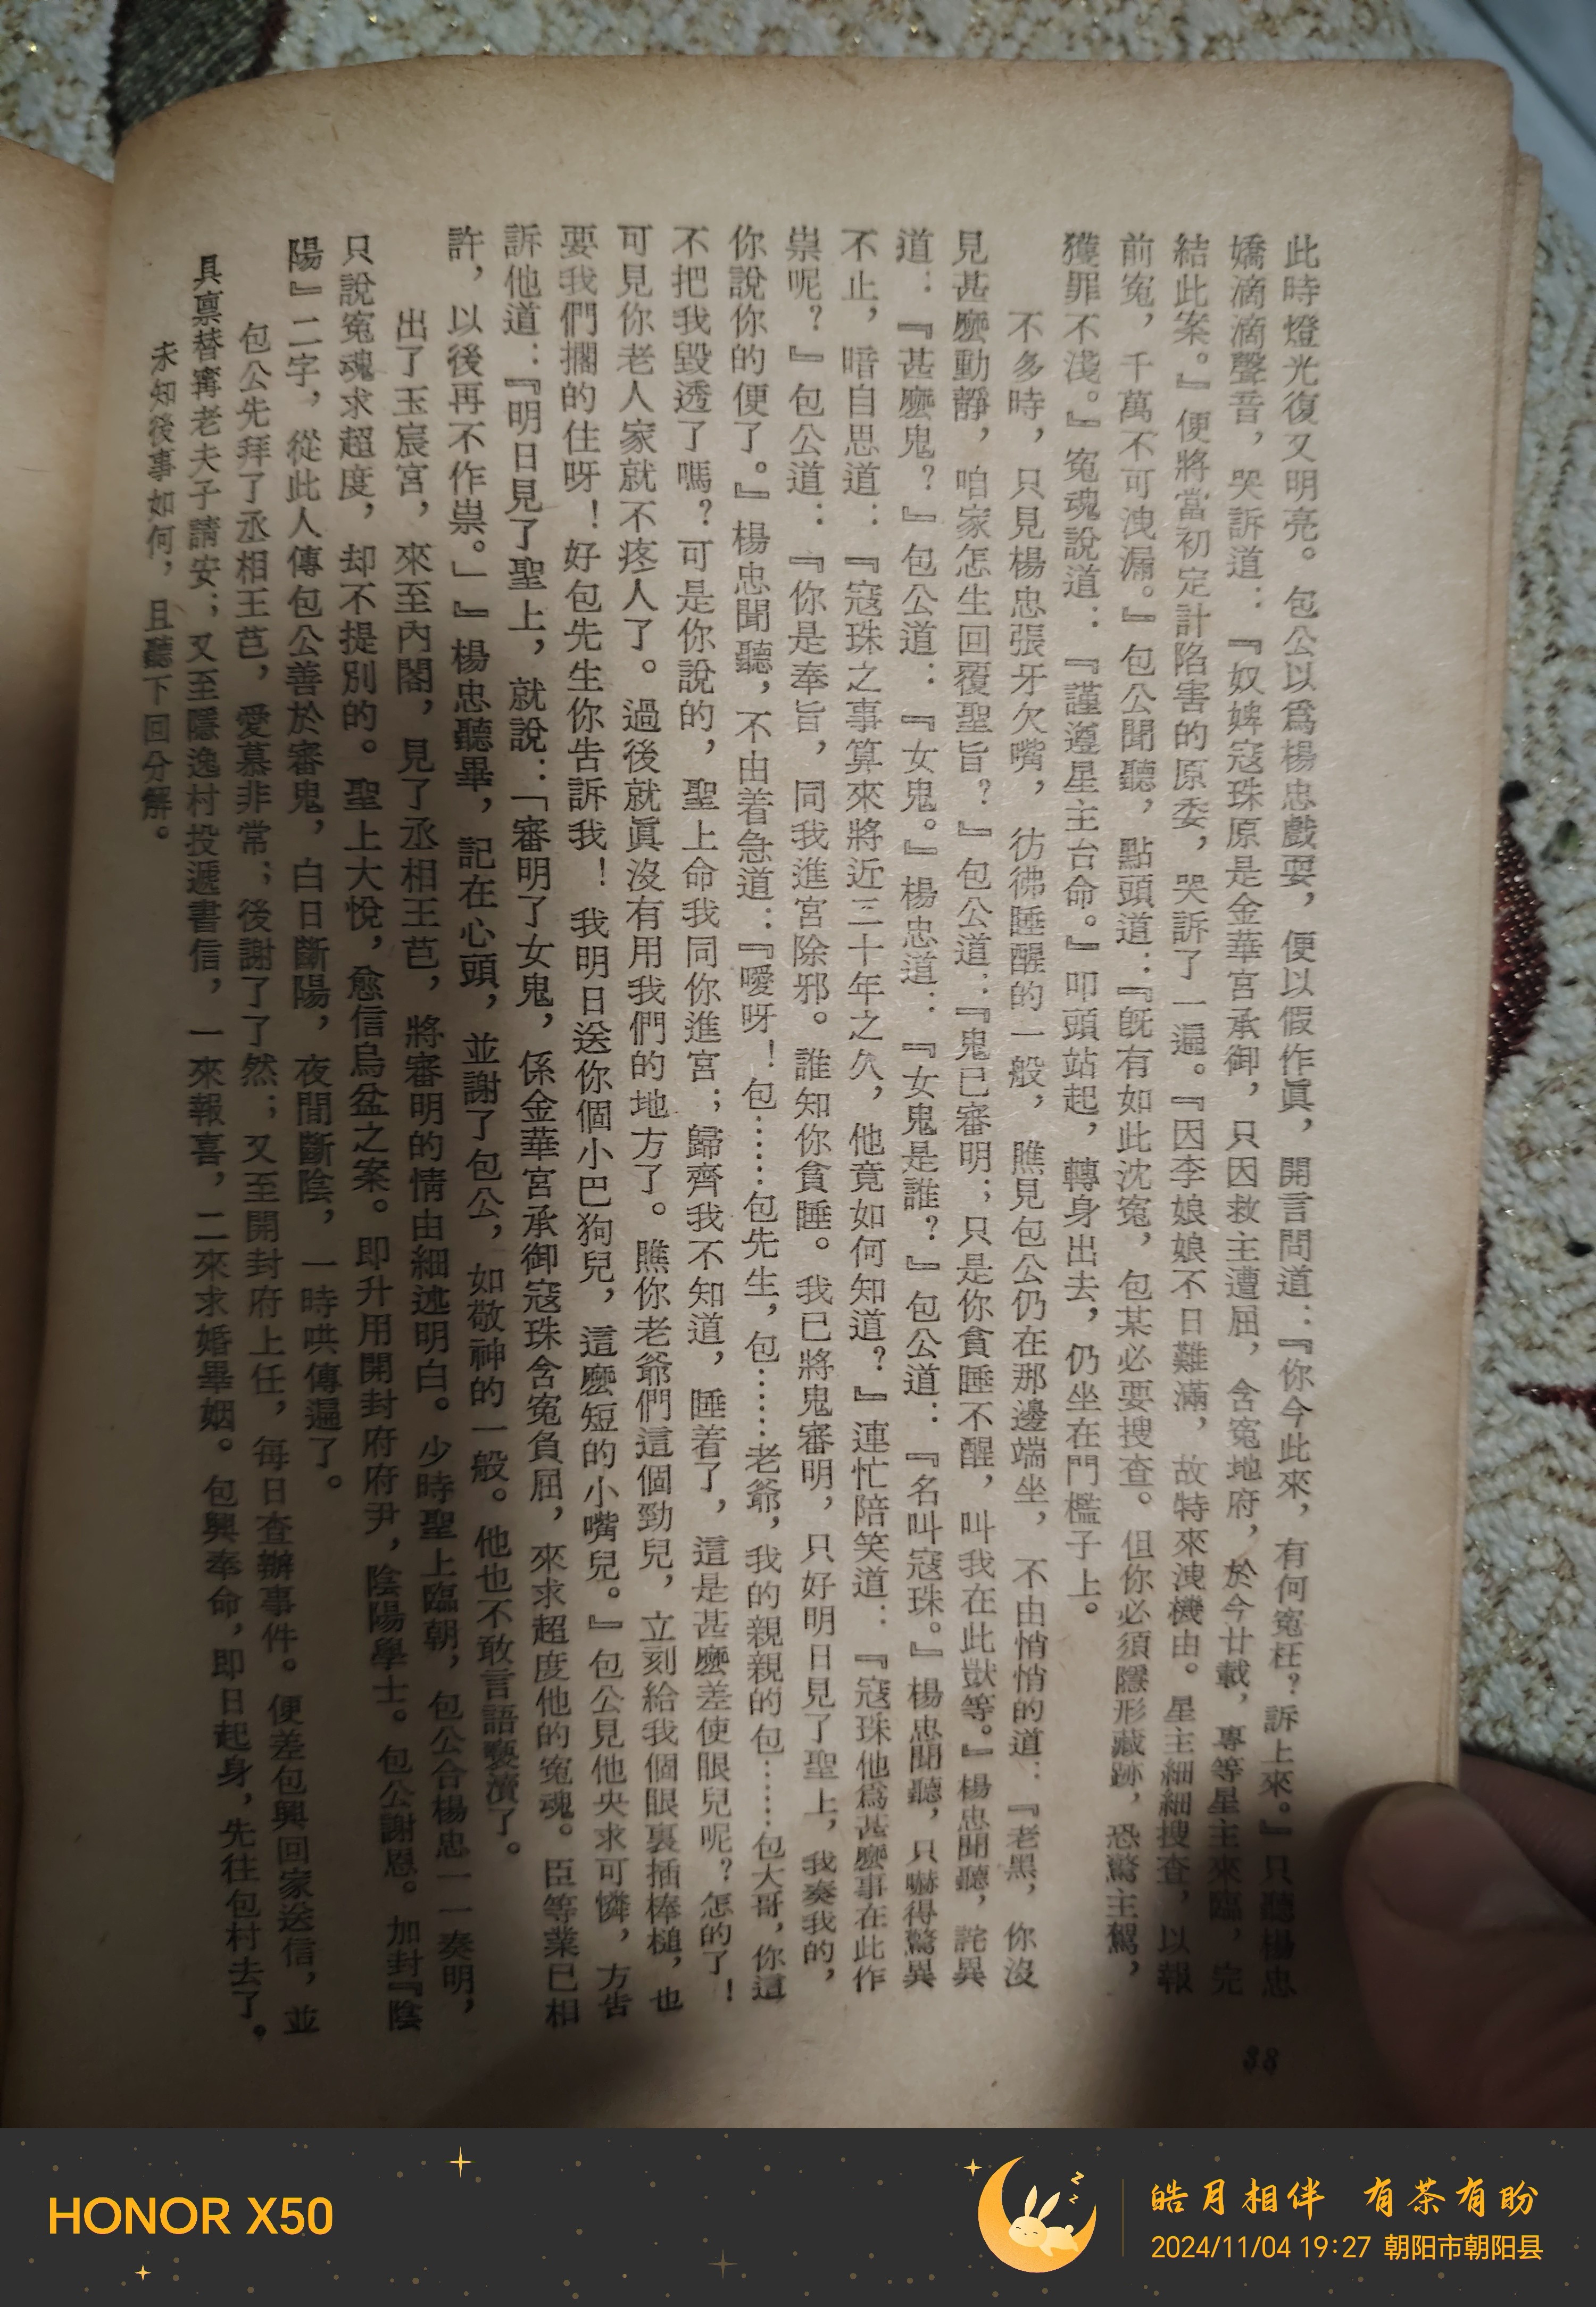 此時燈光復又明亮。包公以爲楊忠戲耍，便以假作眞，開言問道：『你今此來，有何寃枉？訴上來。』只聽楊忠
嬌滴滴聲音，哭訴道：『奴婢寇珠原是金華宮承御，只因救主遭屈，含寃地府，於今廿載，專等星主來臨，完
結此案。』便將當初定計陷害的原委，哭訴了一遍。『因李娘娘不日難滿，故特來洩機由。星主細細搜查，以報
前寃，千萬不可洩漏。』包公聞聽，點頭道：『旣有如此沈寃，包某必要搜查。但你必須隱形藏跡，恐驚主駕，
獲罪不淺。』寃魂說道：『謹遵星主台命。』叩頭站起，轉身出去，仍坐在門檻子上。
不多時，只見楊忠張牙欠嘴，彷彿睡醒的一般，瞧見包公仍在那邊端坐，不由悄悄的道：『老黑，你沒
見甚麼動靜，咱家怎生回覆聖旨？』包公道：『鬼已審明；只是你貪睡不醒，叫我在此獃等。』楊忠聞聽，詫異
道：『甚麼鬼？』包公道：『女鬼。』楊忠道：『女鬼是誰？』包公道：『名叫寇珠。』楊忠聞聽，只嚇得驚異
不止，暗自思道：『寇珠之事算來將近三十年之久，他竟如何知道？』連忙陪笑道：『寇珠他爲甚麼事在此作
祟呢？』包公道：『你是奉旨，同我進宮除邪。誰知你貪睡。我已將鬼審明，只好明日見了聖上，我奏我的，
你說你的便了。』楊忠聞聽，不由着急道：『噯呀！包……包先生，包……老爺，我的親親的包……包大哥，你這
不把我毀透了嗎？可是你說的，聖上命我同你進宮；歸齊我不知道，睡着了，這是甚麼差使眼兒呢？怎的了！
可見你老人家就不疼人了。過後就眞沒有用我們的地方了。瞧你老爺們這個勁兒，立刻給我個眼裏插棒槌，也
要我們擱的住呀！好包先生你告訴我！我明日送你個小巴狗兒，這麼短的小嘴兒。』包公見他央求可憐，方告
訴他道：『明日見了聖上，就說：「審明了女鬼，係金華宮承御寇珠含寃負屈，來求超度他的寃魂。臣等業已相
許，以後再不作祟。」』楊忠聽畢，記在心頭，並謝了包公，如敬神的一般。他也不敢言語褻瀆了。
出了玉宸宮，來至內閣，見了丞相王芑，將審明的情由細述明白。少時聖上臨朝，包公合楊忠一一奏明，
只說寃魂求超度，却不提別的。聖上大悅，愈信烏盆之案。即升用開封府府尹，陰陽學士。包公謝恩。加封『陰
陽』二字，從此人傳包公善於審鬼，白日斷陽，夜間斷陰，一時哄傳遍了。
包公先拜了丞相王芑，愛慕非常；後謝了了然；又至開封府上任，每日查辦事件。便差包興回家送信，並
具禀替寗老夫子請安；又至隱逸村投遞書信，一來報喜，二來求婚畢姻。包興奉命，即日起身，先往包村去了。
未知後事如何，且聽下回分解。
38
HONOR X50
皓月相伴 有茶有盼
2024/11/04 19:27 朝阳市朝阳县